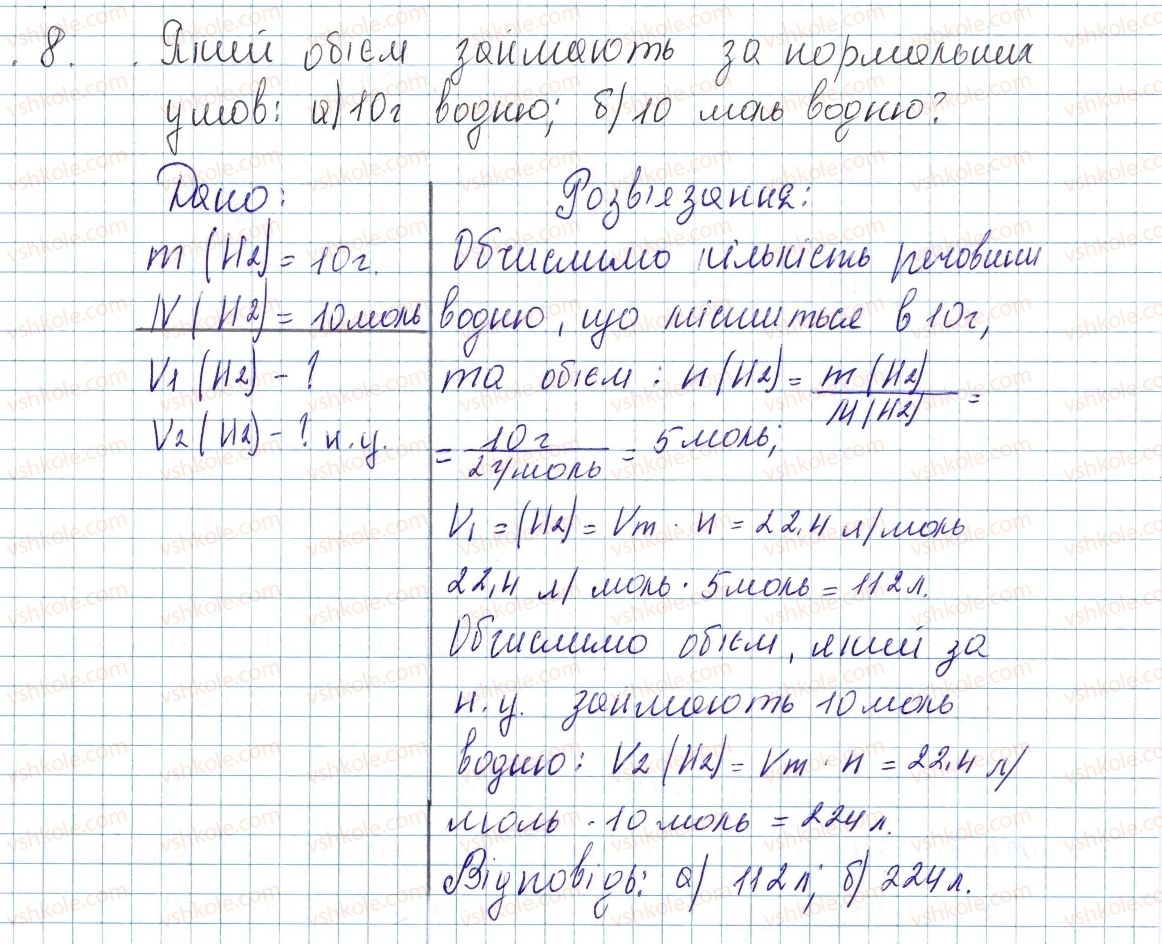 8. Який обієм займають за нормальних
умов: а) 10г водню; б) 10 моль водню?
Дано:
m (H2) = 10г.
N (H2) = 10моль
V1 (H2) - ?
V2 (H2) - ? н.у.
Розв'язання:
Обчислимо кількість речовини
водню, що міститься в 10г,
та обієм : n (H2) = m (H2) / M (H2) =
= 10 г / 2 г/моль = 5 моль;
V1 = (H2) = Vm · n = 22,4 л/моль
22,4 л/ моль · 5моль = 112 л.
Обчислимо обієм, який за
н.у. займають 10 моль
водню: V2 (H2) = Vm · n = 22,4 л/
моль · 10 моль = 224 л.
Відповідь: а) 112 л; б) 224 л.